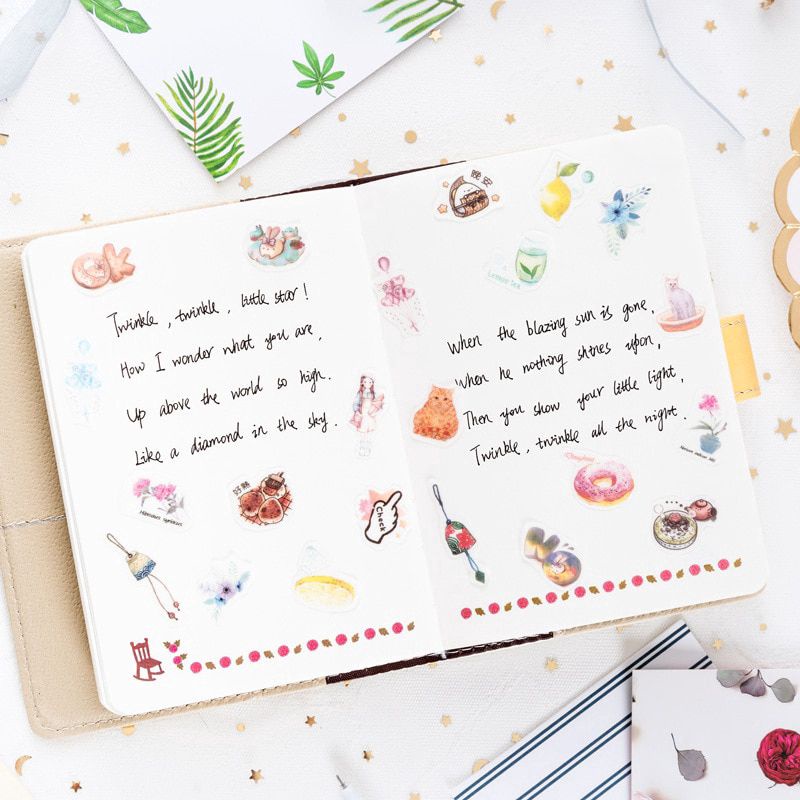 OK
Twinkle, twinkle, little star!
How I wonder what you are,
Up above the world so high.
Like a diamond in the sky.
Check
晚安
Lemon Tea
When the blazing sun is gone,
When he nothing shines upon,
Then you show your little light,
Twinkle, twinkle all the night.